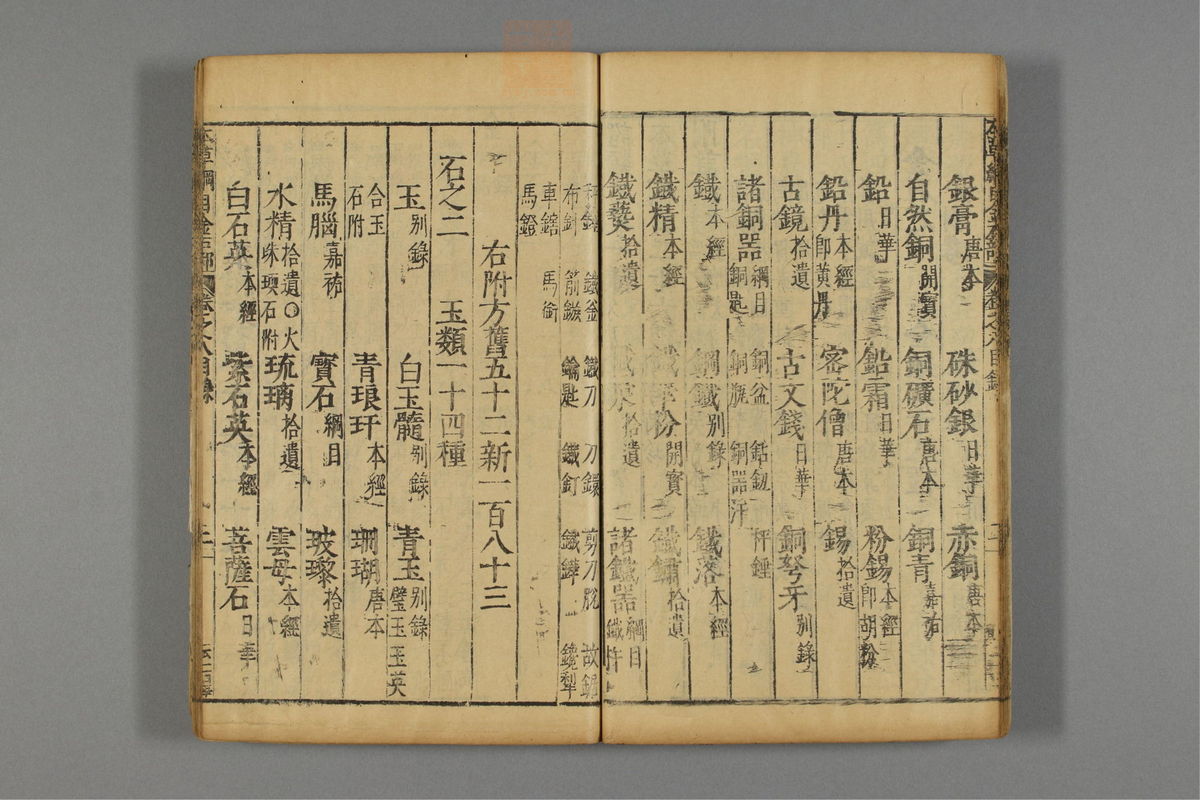 銀膏唐本 硃砂銀日華 赤銅唐本
自然銅開寶 銅礦石唐本 銅青嘉祐
鉛日華 鉛霜日華 粉錫本經即胡粉
鉛丹本經即黄丹 密陀僧唐本 錫拾遺
古鏡拾遺 古文錢日華 銅弩牙別錄
諸銅器綱目 銅盆 鈷鉧 秤錘 銅匙 銅器汗
鐵本經 鋼鐵別錄 鐵落本經
鐵精本經 鐵華粉開寶 鐵鏽拾遺
鐵爇拾遺 拾遺 諸鐵器綱目 鐵杵
鐵釜 鐵刀 刀鐶 剪刀股 故鋸
布針 鐵鏃 鑰匙 鐵釘 鐵鏵 犂
車轄 馬銜
馬鐙
右附方舊五十二新一百八十三
石之二 玉類一十四種
玉別錄 白玉髓別錄 青玉別錄 璧玉 玉英
合玉石附 青琅玕本經 珊瑚唐本
馬腦嘉祐 寳石綱目 玻瓈拾遺
水精拾遺○火珠瑛石附 琉璃拾遺 雲母本經
白石英本經 紫石英本經 菩薩石日華
本草綱目金石部 卷之八目錄